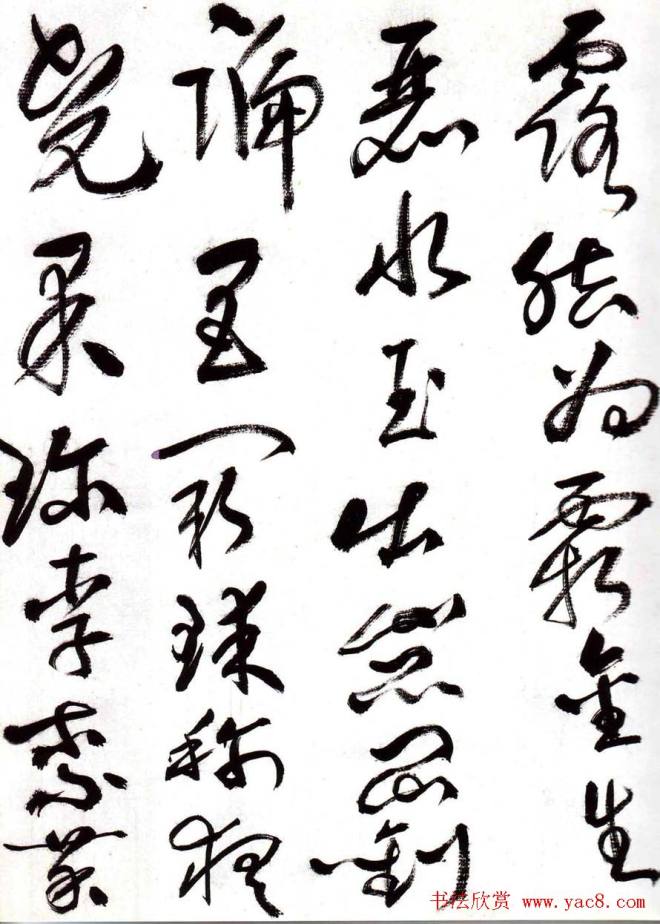 露結為霜金生
麗水玉出崑岡劍
號巨闕珠稱夜
光果珍李柰菜
书法欣赏 www.yac8.com